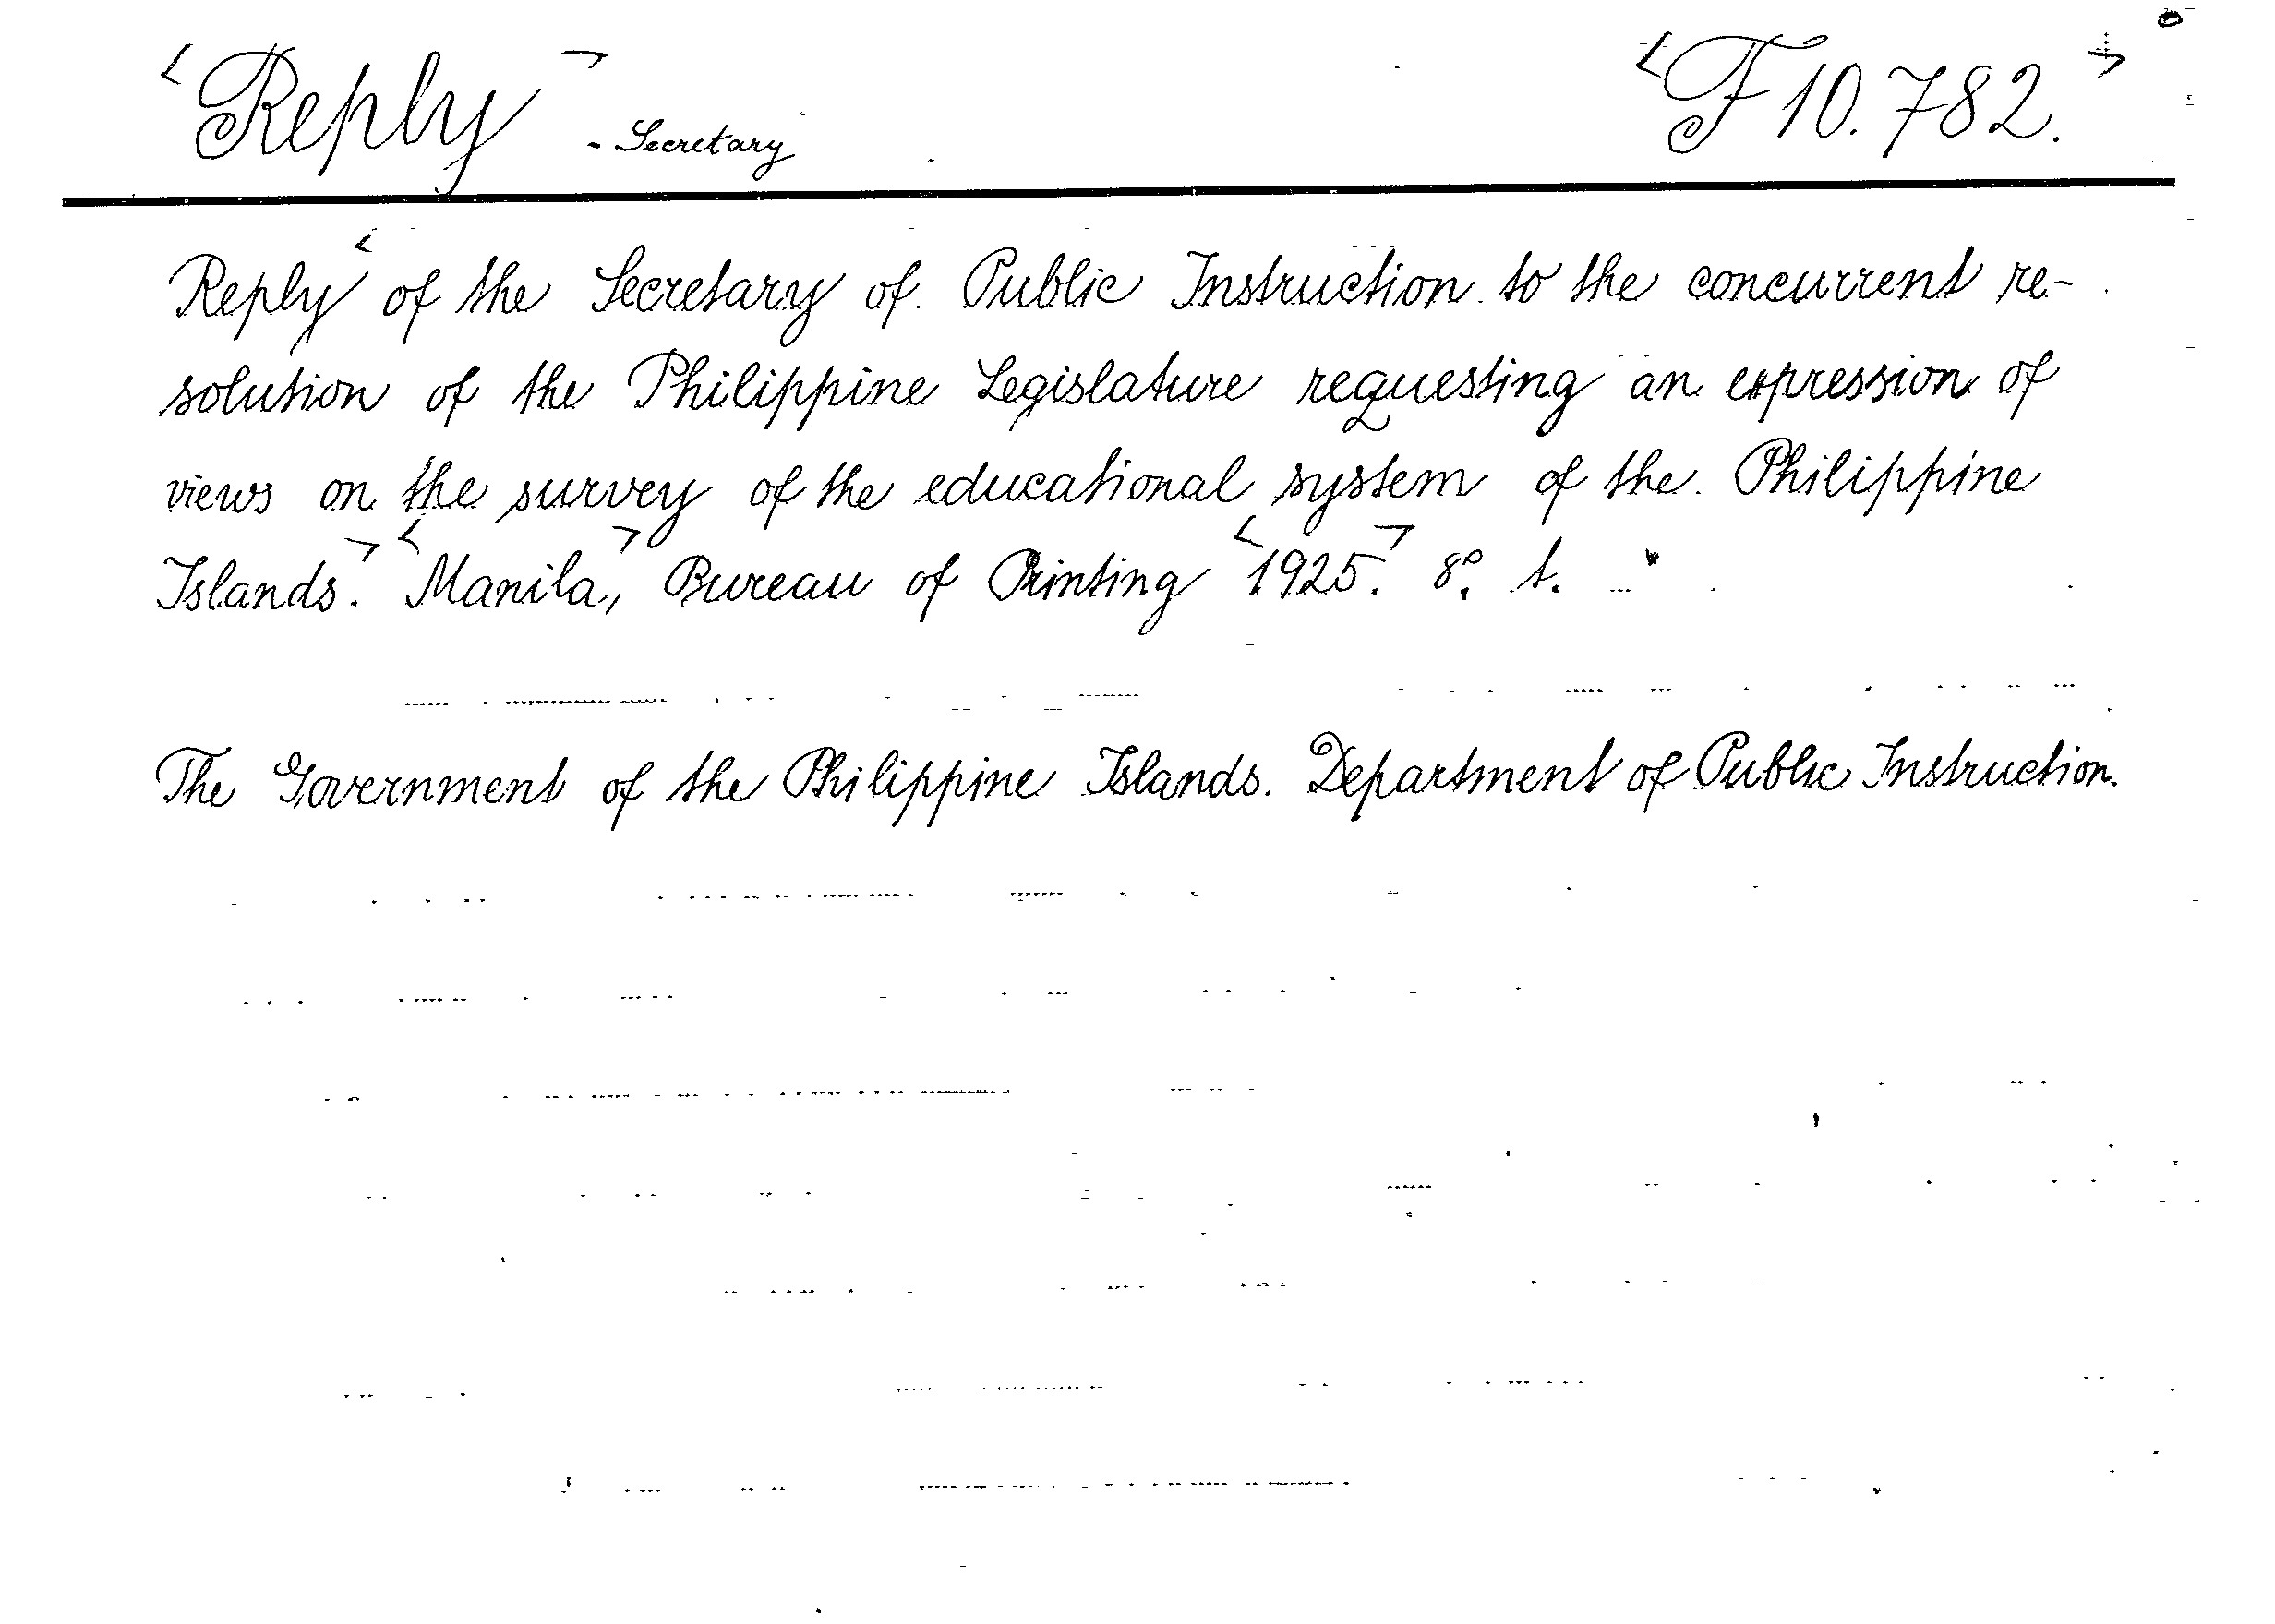 <Reply> - Secretary <F 10.782.>
Reply <of the Secretary of Public Instruction to the concurrent re-
solution of the Philippine Legislature requesting an expression of
views on the survey of the educational system of the Philippine
Islands.> <Manila,> Bureau of Printing <1925.> 8º. t.
The Government of the Philippine Islands. Department of Public Instruction.